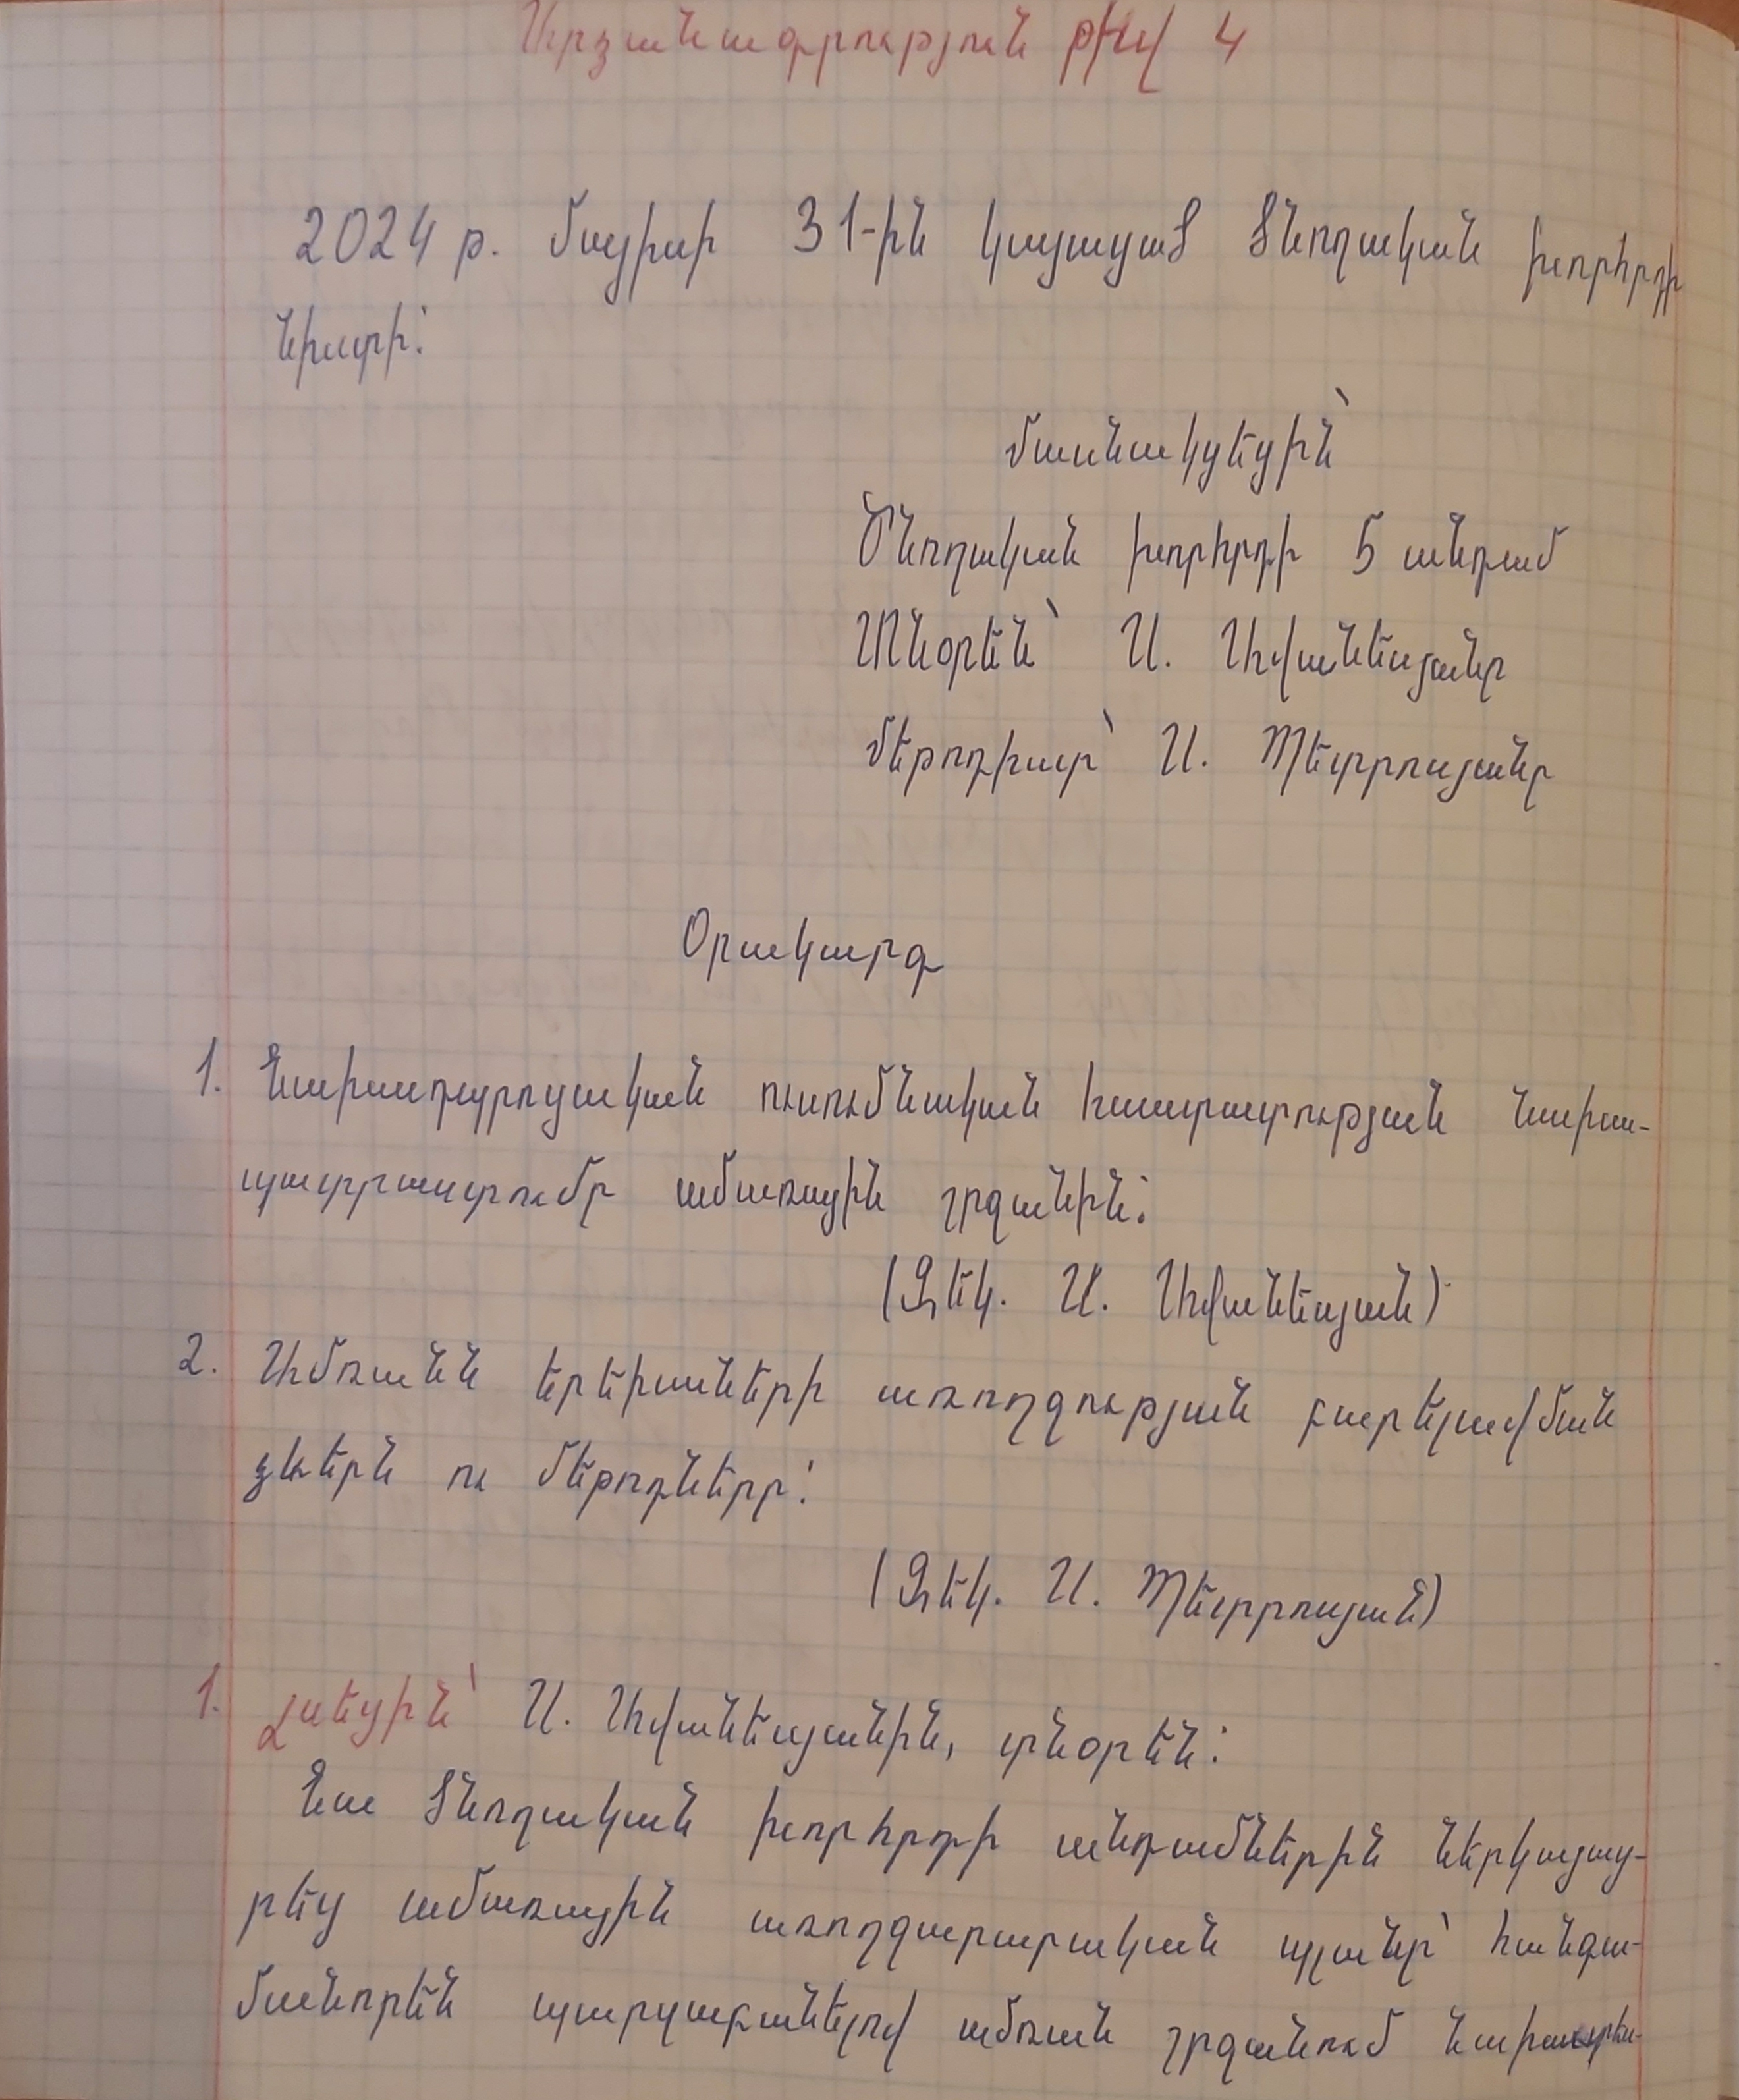 Արձանագրություն թիվ 4
2024 թ. մայիսի 31-ին կայացած ծնողական խորհրդի
նիստի:
մասնակցեցին՝
Ծնողական խորհրդի 5 անդամ
Տնօրեն՝ Ա. Ավանեսյանը
մեթոդիստ՝ Ա. Պետրոսյանը
Օրակարգ
1. Նախադպրոցական ուսումնական հաստատության նախա-
պատրաստումը ամառային շրջանին:
(Զեկ. Ա. Ավանեսյան)
2. Ամռանն երեխաների առողջության բարելավման
ձևերն ու մեթոդները:
(Զեկ. Ա. Պետրոսյան)
1. Լսեցին՝ Ա. Ավանեսյանին, տնօրեն:
Նա ծնողական խորհրդի անդամներին ներկայաց-
րեց ամառային առողջարարական պլանը՝ հանգա-
մանորեն պարզաբանելով ամռան շրջանում նախատես-